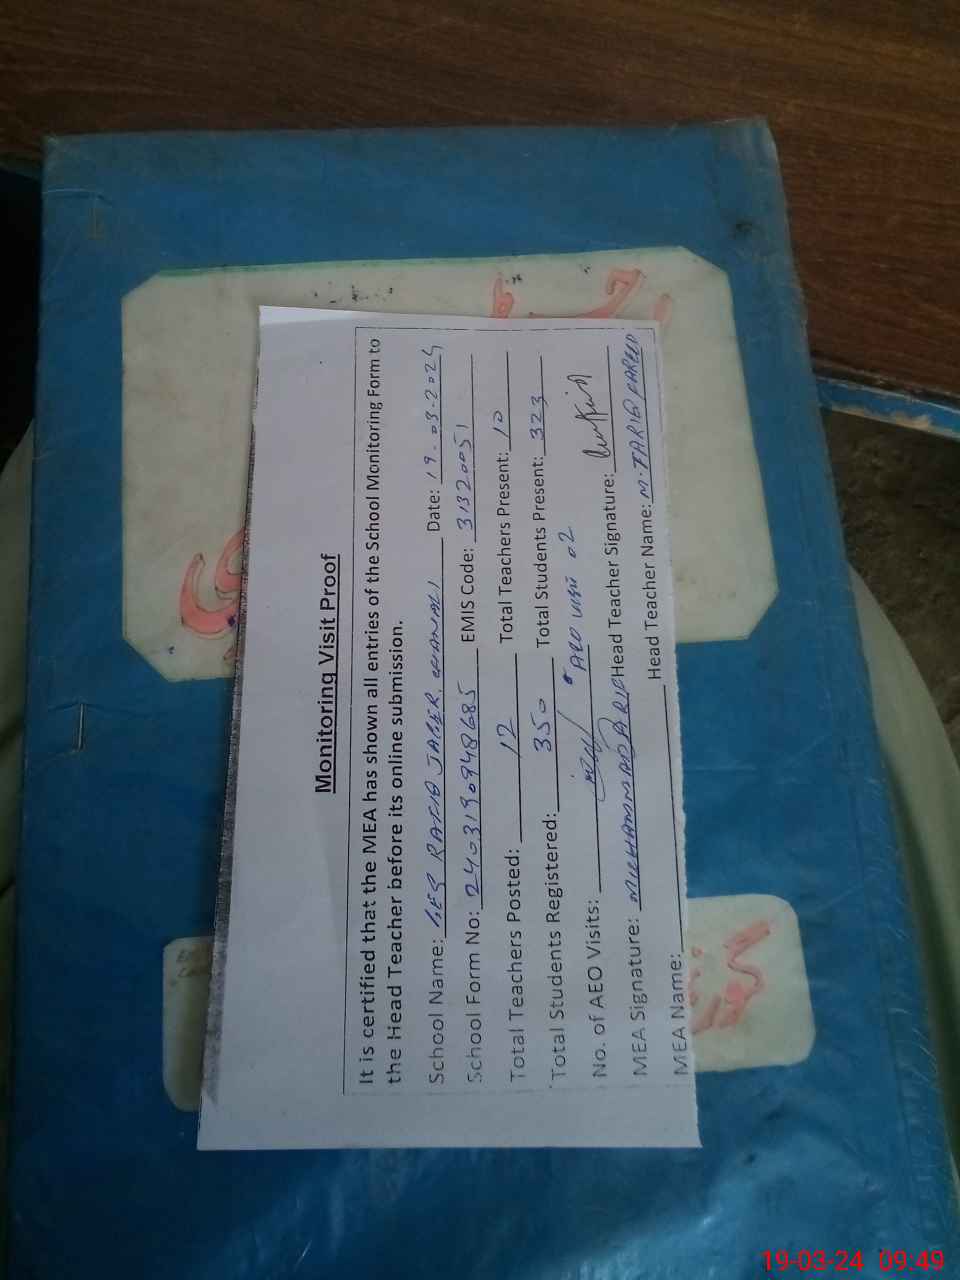 Monitoring Visit Proof
It is certified that the MEA has shown all entries of the School Monitoring Form to
the Head Teacher before its online submission.
School Name: GES Date: 19.03.2024
School Form No: 2403190948685 EMIS Code: 31320051
Total Teachers Posted: 12 Total Teachers Present: 10
Total Students Registered: 350 Total Students Present: 323
No. of AEO Visits: AEO visit 02
MEA Signature: MUHAMMAD ARIF Head Teacher Signature:
MEA Name: Head Teacher Name: M. TARIQ FAREED
19-03-24 09:49